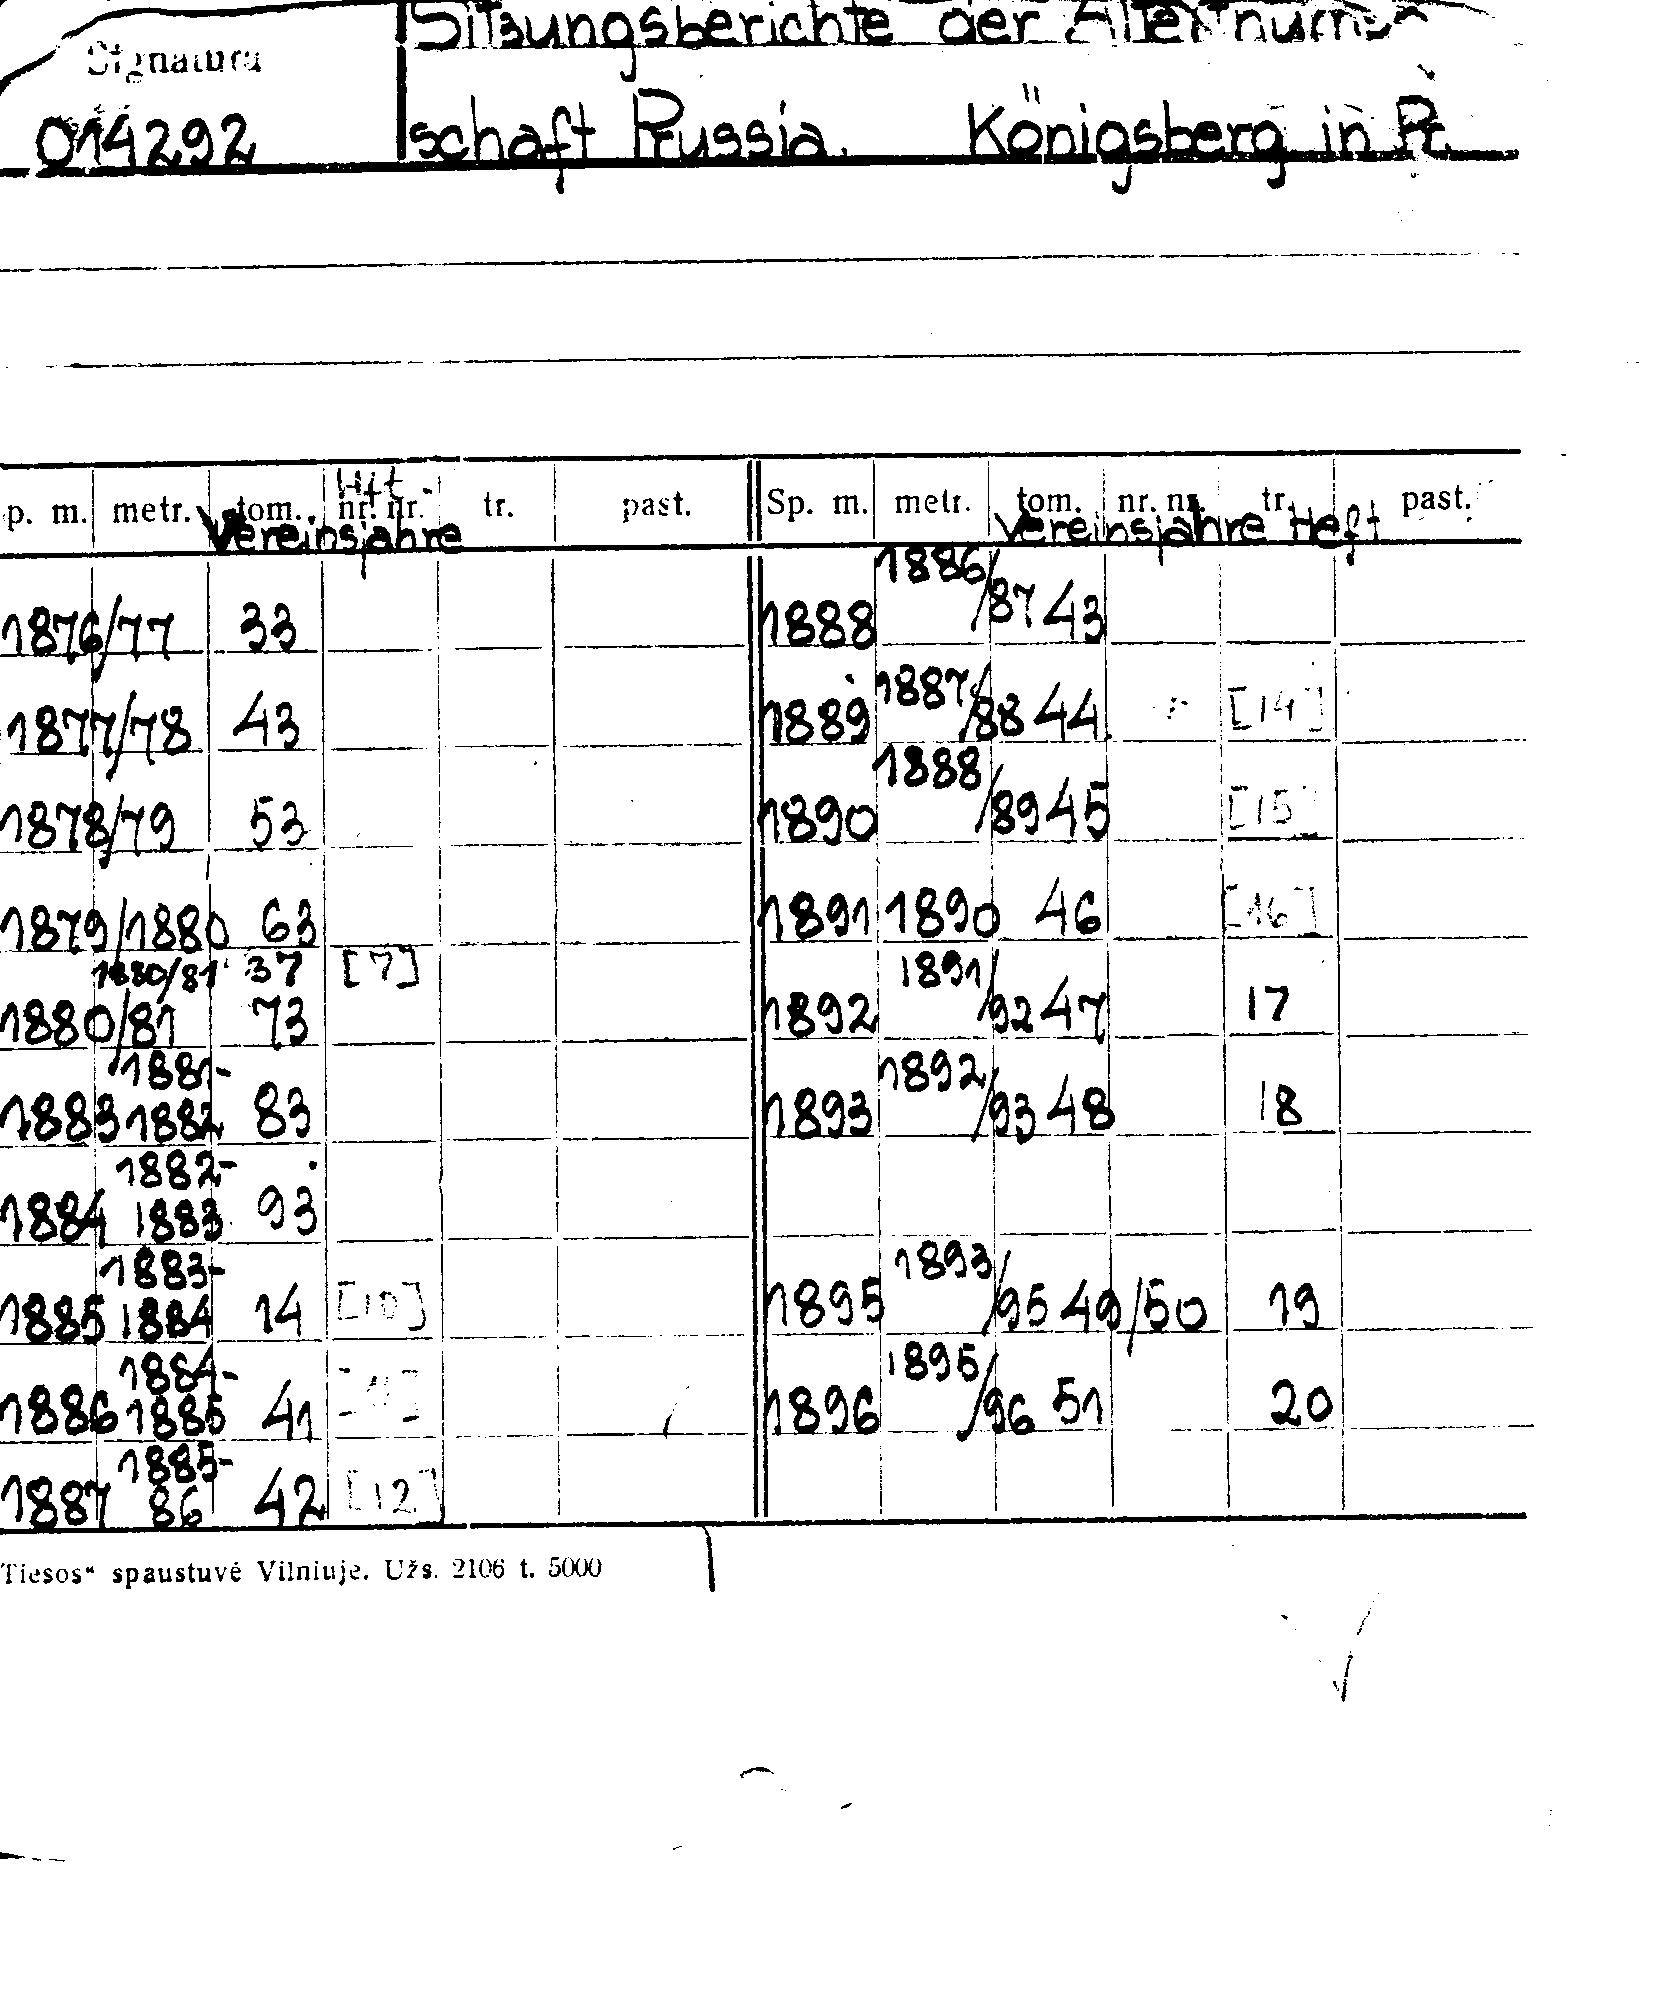 Sitzungsberichte der Altertums-
Signatura
014292
schaft Prussia. Königsberg in Pr.
Hft.
p. m. metr. tom. nr. nr. tr. past. Sp. m. metr. tom. nr. nr. tr. past.
Vereinsjahre Vereinsjahre Heft
1876/77 33
1877/78 43
1878/79 53
1879/1880 63
1880/81 37 [7]
1880/81 73
1881-
1883 1882 83
1882-
1884 1883 93
1883-
1885 1884 14 [10]
1884-
1886 1885 41 [11]
1885-
1887 86 42 [12]
1886
1888 /87 43
1887
1889 /88 44 [14]
1888
1890 /89 45 [15]
1891 1890 46 [16]
1891
1892 /92 47 17
1892
1893 /93 48 18
1893
1895 /95 49/50 19
1895
1896 /96 51 20
Tiesos“ spaustuvė Vilniuje. Užs. 2106 t. 5000